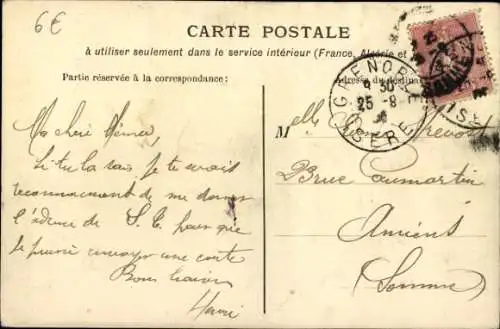 6€
CARTE POSTALE
à utiliser seulement dans le service intérieur (France, Algérie et
Partie réservée à la correspondance :
Adresse du destina
GRENOBLE
9 30
25 -8
ISERE
Ma chère
Si tu la sais, je te serais
reconnaissant de me donner
l'adresse de S. E. pour que
je puisse envoyer une carte
Bons baisers
Henri
Melle Prevost
Rue Caumartin
Amiens
(Somme)